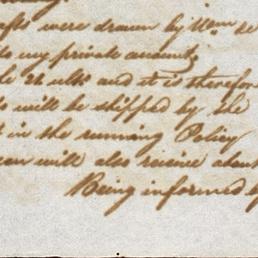 afts were drawn by Wm
to my private account;
and it is therefor
will be shipped by the
in the running Policy
will also receive about
Being informed by